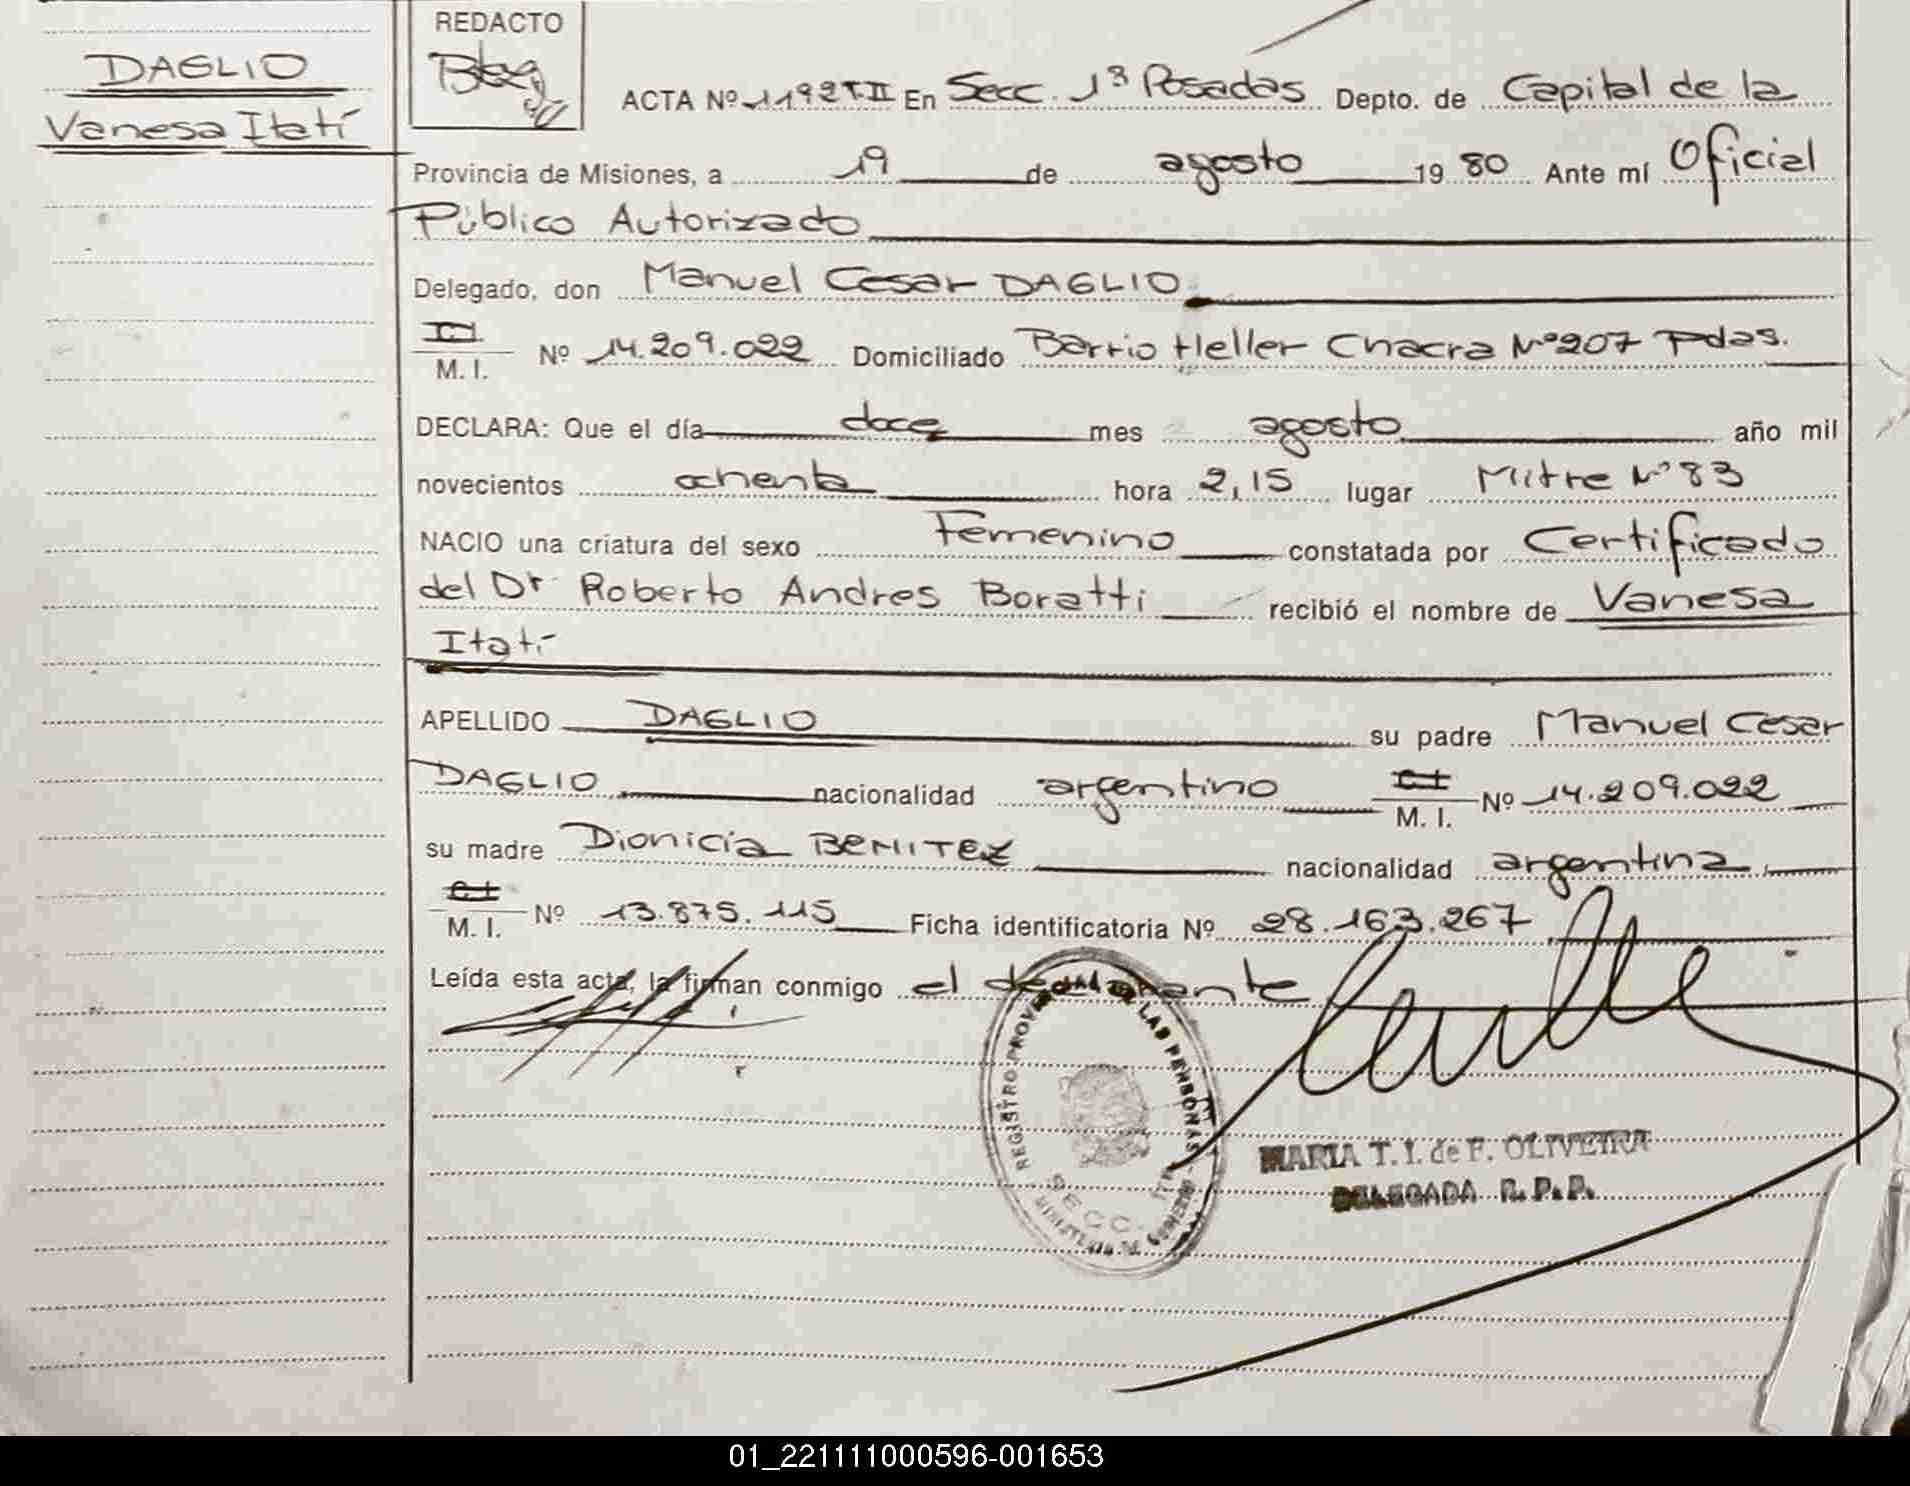 DAGLIO
Vanesa Itatí
REDACTO
ACTA Nº 1192 T.II En Secc. 1ª Posadas Depto. de Capital de la
Provincia de Misiones, a 19 de agosto 1980 Ante mí Oficial
Público Autorizado
Delegado, don Manuel Cesar DAGLIO
M. I. Nº 14.209.022 Domiciliado Barrio Heller Chacra Nº 207 Pdas.
DECLARA: Que el día doce mes agosto año mil
novecientos ochenta hora 2,15 lugar Mitre Nº 83
NACIO una criatura del sexo Femenino constatada por Certificado
del Dr Roberto Andres Boratti recibió el nombre de Vanesa
Itatí
APELLIDO DAGLIO su padre Manuel Cesar
DAGLIO nacionalidad argentino M. I. Nº 14.209.022
su madre Dionicia BENITEZ nacionalidad argentina
M. I. Nº 13.875.115 Ficha identificatoria Nº 28.163.267
Leída esta acta, la firman conmigo el declarante
REGISTRO PROVINCIAL DE LAS PERSONAS
SECC.
MINISTERIO DE GOBIERNO
MARIA T. I. de F. OLIVEIRA
DELEGADA R. P. P.
01_221111000596-001653